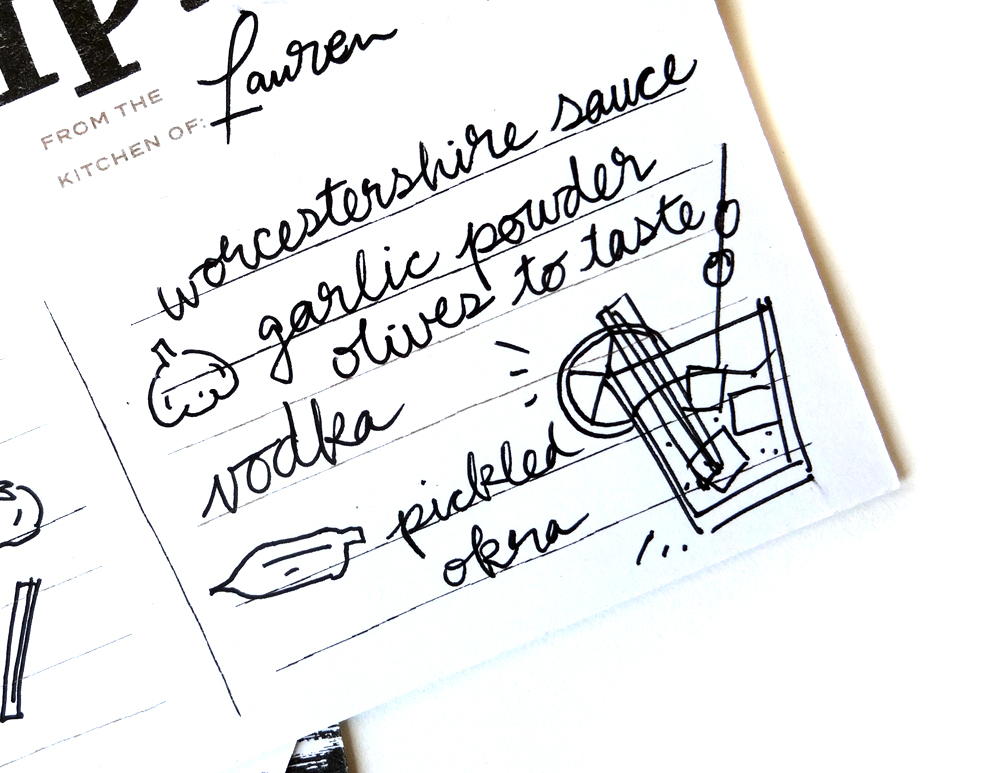 FROM THE
KITCHEN OF: Lauren
worcestershire sauce
garlic powder
olives to taste
vodka
pickled
okra